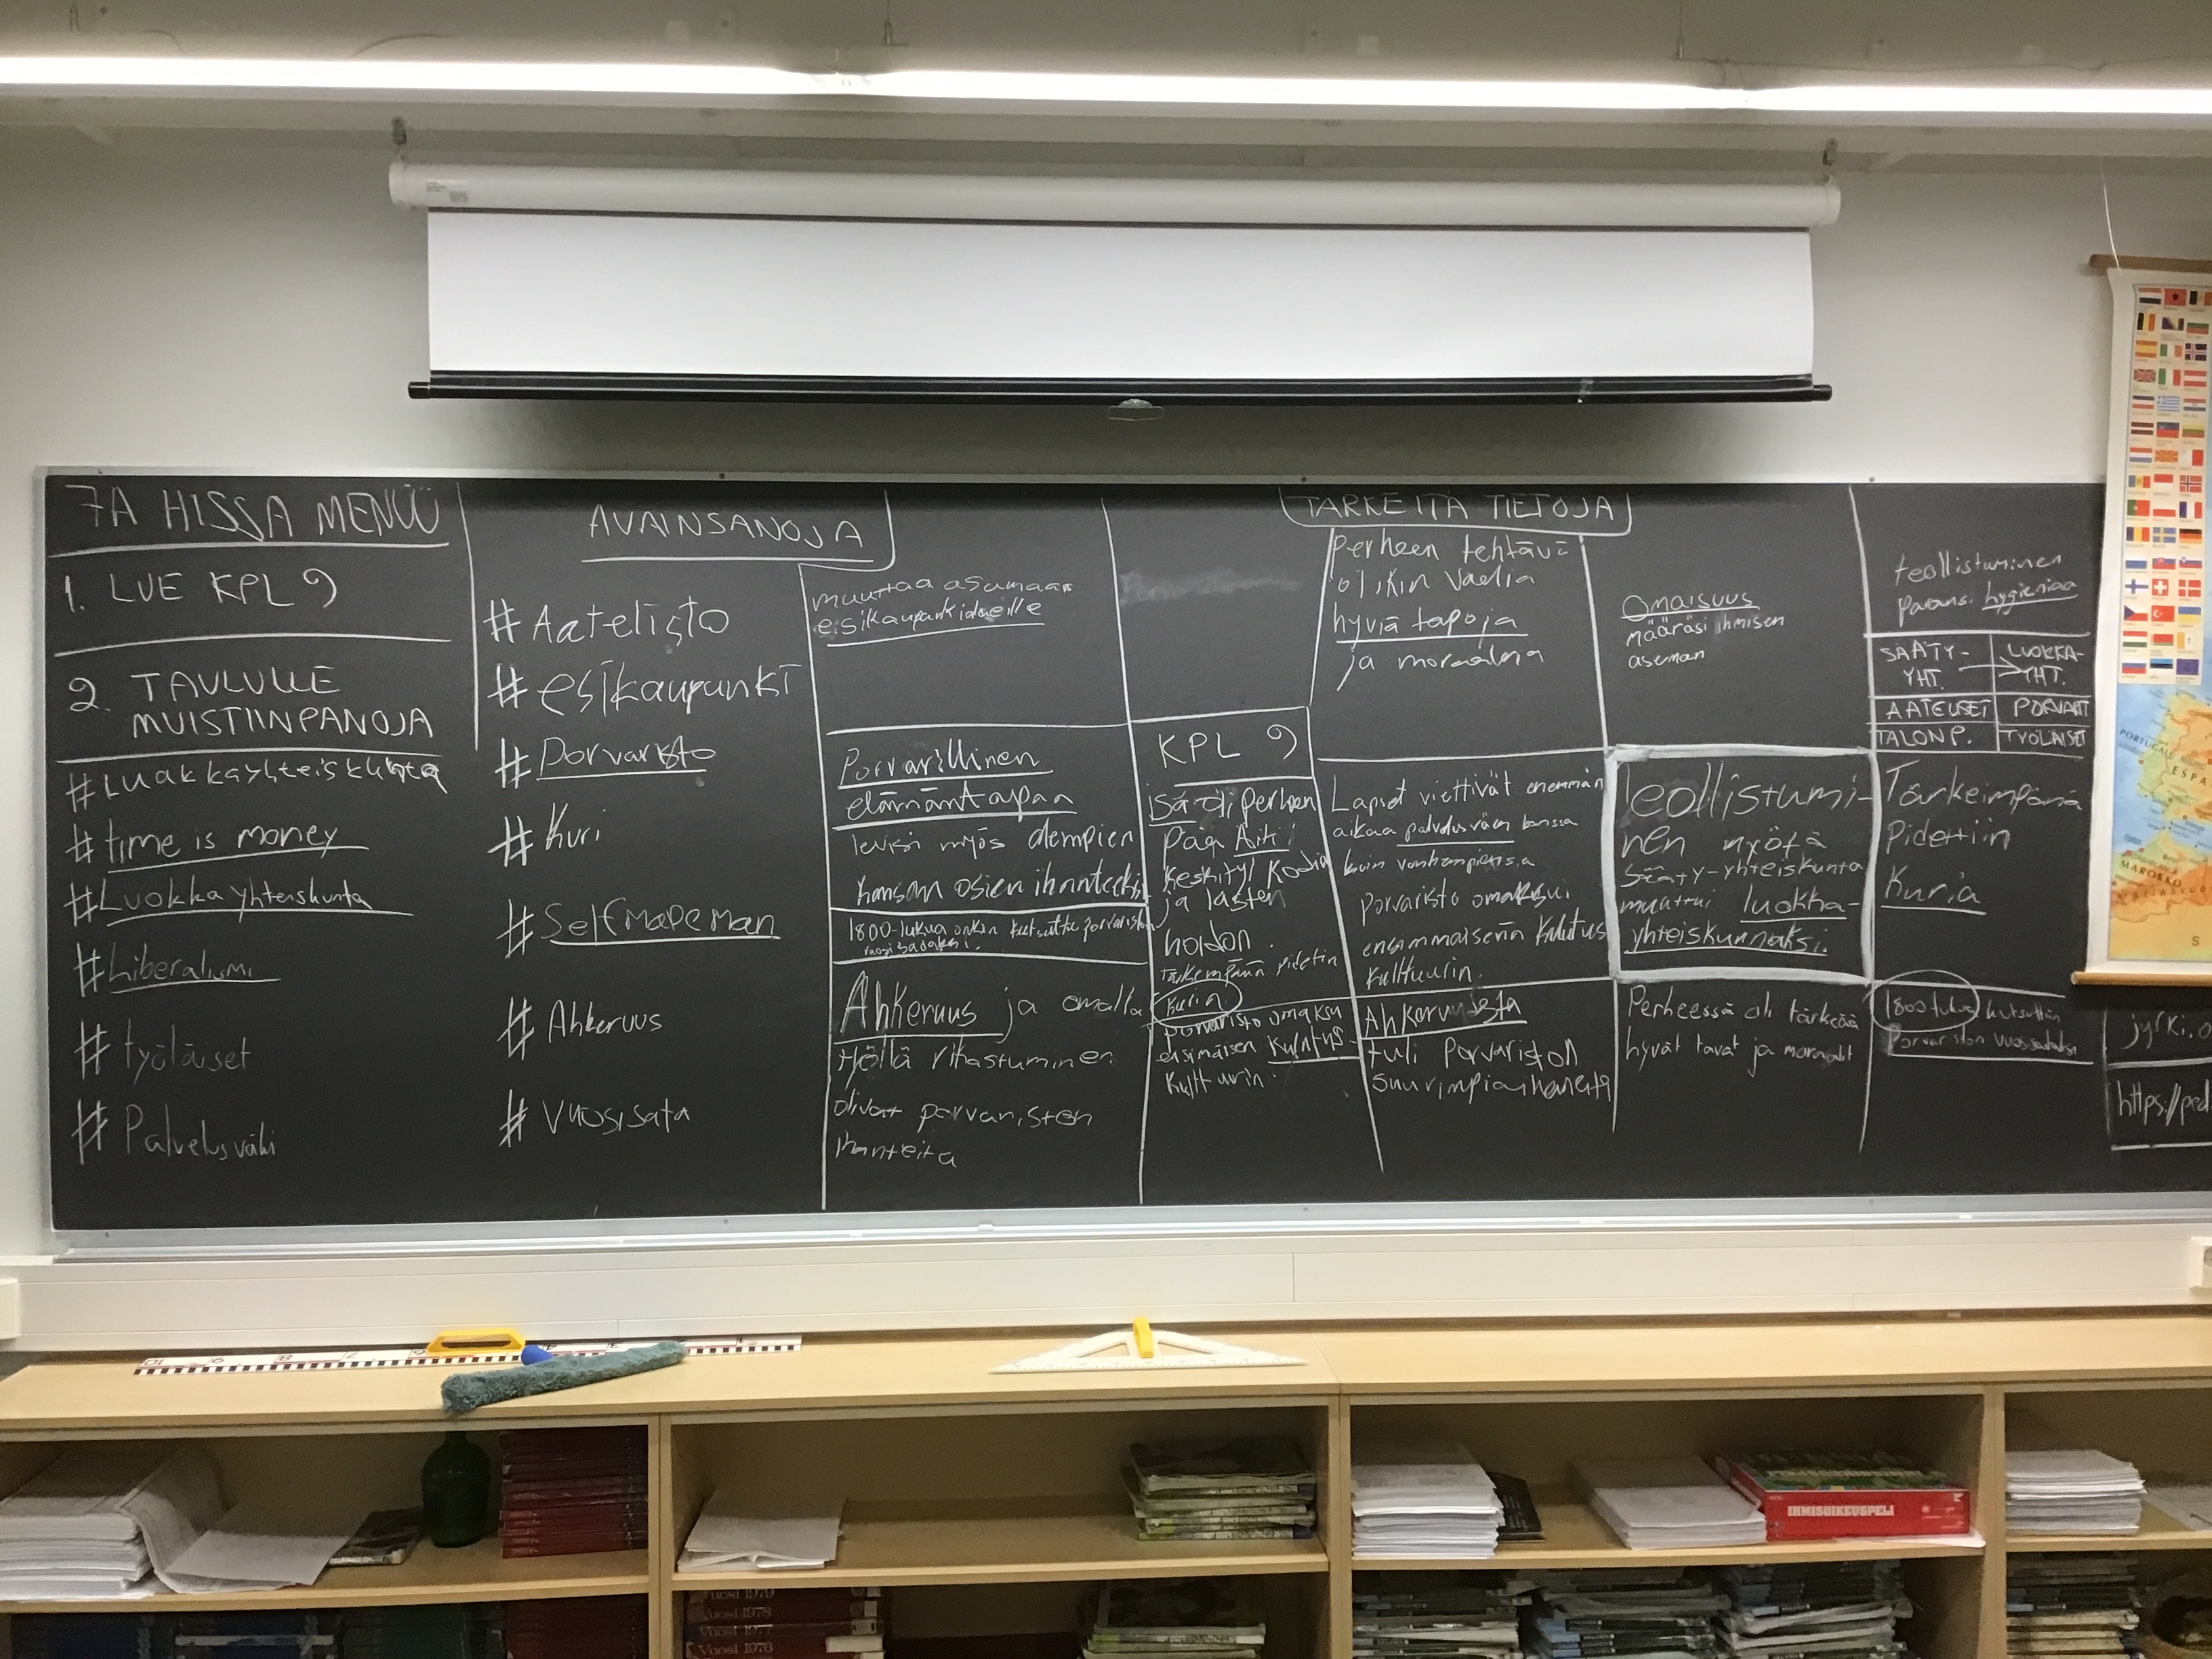 7A HISSA MENÜÜ
1. LUE KPL 9
2. TAULULLE
MUISTIINPANOJA
#Luokkayhteiskunta
#time is money
#Luokkayhteiskunta
#Liberalismi
#työläiset
#Palvelusväki
AVAINSANOJA
#Aatelisto
#esikaupunki
#Porvaristo
#Kuri
#Selfmademan
#Ahkeruus
#Vuosisata
muuttaa asumaan
esikaupunkialueille
Porvarillinen
elämäntapaa
levisi myös alempien
kansan osien ihanteeksi
1800-lukua onkin kutsuttu porvariston
vuosisadaksi.
Ahkeruus ja omalla
työllä rikastuminen
olivat porvaristen
ihanteita
KPL 9
isä oli perheen
pää Äiti
keskittyi kodin
ja lasten
hoidon.
tärkeimpänä pidetiin
kurin
porvaristo omaksu
ensimäisen kulutus-
kulttuurin.
TÄRKEITÄ TIETOJA
perheen tehtävä
olikin vaalia
hyviä tapoja
ja moraalia
Lapset viettivät enemmän
aikaa palvelusväen kanssa
kuin vanhempiensa
porvaristo omaksui
ensimmäisenä kulutus
kulttuurin.
Ahkeruudesta
tuli porvariston
suurimpia ihanteita
Omaisuus
määräsi ihmisen
aseman
Teollistumi-
nen myötä
sääty-yhteiskunta
muuttui luokka-
yhteiskunnaksi.
Perheessä oli tärkeää
hyvät tavat ja moraalit
teollistuminen
paransi hygieniaa
SÄÄTY- LUOKKA-
YHT. YHT.
AATELISET PORVARIT
TALONP. TYÖLÄISET
Tärkeimpänä
Pidettiin
Kuria
1800 lukua kutsuttiin
Porvariston vuosisadaksi
jyrki.o
https://ped
PORTUGAL
ESPA
MAROKKO
S
IHMISOIKEUSPELI
Vuosi 1979
Vuosi 1978
Vuosi 1977
Vuosi 1976